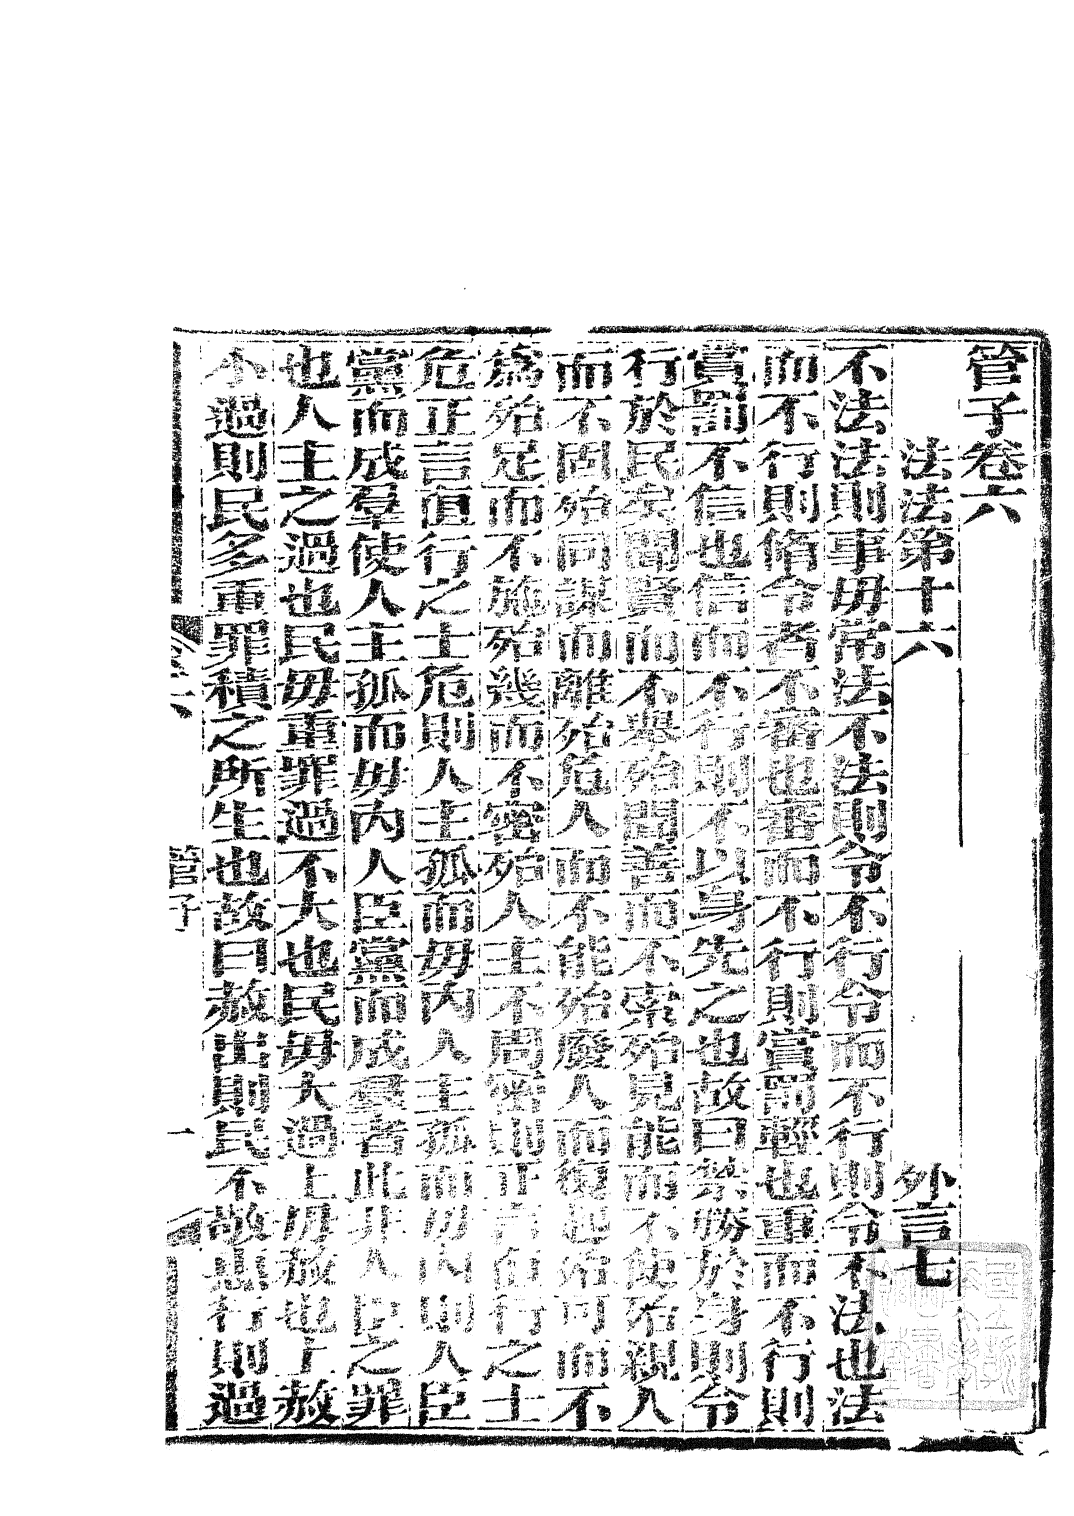 管子卷六
法法第十六　外言七
不法法則事毋常法不法則令不行令而不行則令不法也法
而不行則脩令者不審也審而不行則賞罰輕也重而不行則
賞罰不信也信而不行則不以身先之也故曰禁勝於身則令
行於民矣聞賢而不舉殆聞善而不索殆見能而不使殆親人
而不固殆同謀而離殆危人而不能殆廢人而復起殆可而不
為殆足而不施殆幾而不密殆人主不周密則正言直行之士
危正言直行之士危則人主孤而毋內人主孤而毋內則人臣
黨而成羣使人主孤而毋內人臣黨而成羣者此非人臣之罪
也人主之過也民毋重罪過不大也民毋大過上毋赦也上赦
小過則民多重罪積之所生也故曰赦出則民不敬惠行則過
管子
一